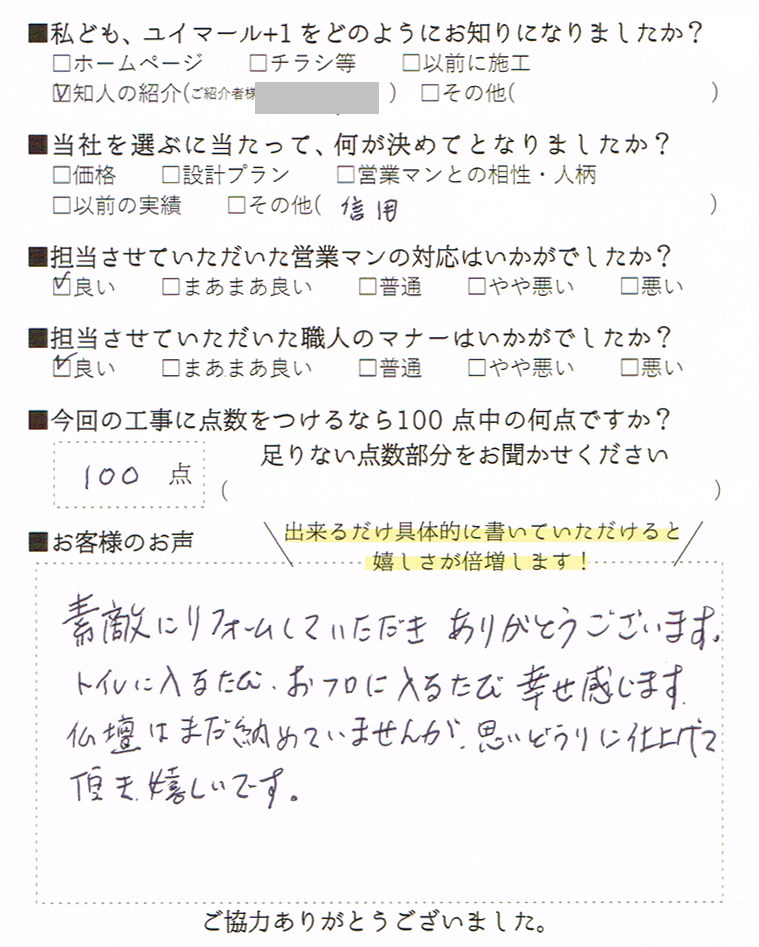 ■私ども、ユイマール+1をどのようにお知りになりましたか？
□ホームページ　□チラシ等　□以前に施工
☑知人の紹介(ご紹介者様　)　□その他(　)
■当社を選ぶに当たって、何が決めてとなりましたか？
□価格　□設計プラン　□営業マンとの相性・人柄
□以前の実績　□その他(信用　)
■担当させていただいた営業マンの対応はいかがでしたか？
☑良い　□まあまあ良い　□普通　□やや悪い　□悪い
■担当させていただいた職人のマナーはいかがでしたか？
☑良い　□まあまあ良い　□普通　□やや悪い　□悪い
■今回の工事に点数をつけるなら100点中の何点ですか？
100 点
足りない点数部分をお聞かせください
(　)
■お客様のお声
出来るだけ具体的に書いていただけると
嬉しさが倍増します！
素敵にリフォームしていただき ありがとうございます。
トイレに入るたび、おフロに入るたび 幸せ感じます
仏壇はまだ納めていませんが、思いどうりに仕上げて
頂き、嬉しいです。
ご協力ありがとうございました。